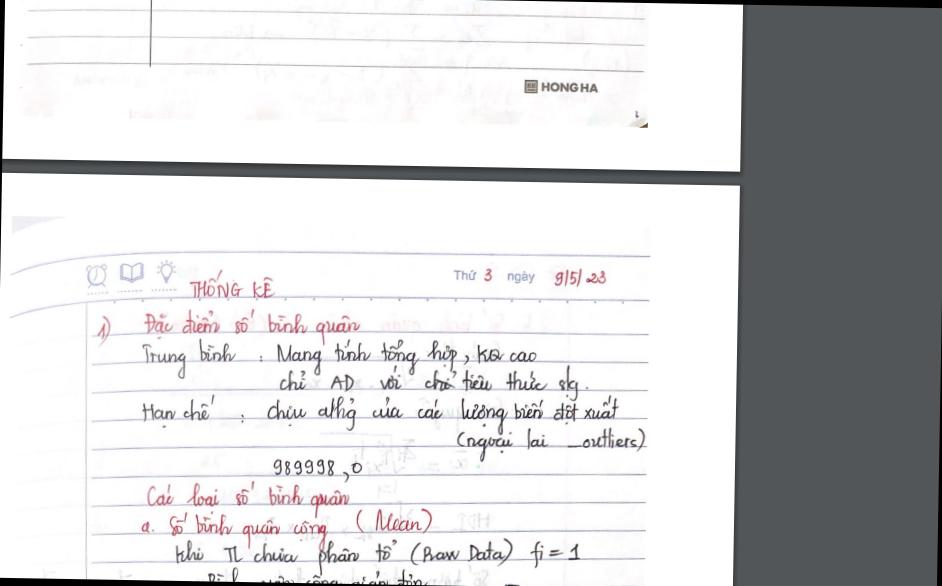 HONG HA
Thứ 3 ngày 9/5/23
THỐNG KÊ
1) Đặc điểm số bình quân
Trung bình : Mang tính tổng hợp, KQ cao
chỉ AD với chỉ tiêu thức slg.
Hạn chế : chịu ahg̉ của các lượng biến đột xuất
(ngoại lai _outliers)
989998,0
Các loại số bình quân
a. Số bình quân cộng (Mean)
Khi TL chưa phân tổ (Raw Data) fi = 1